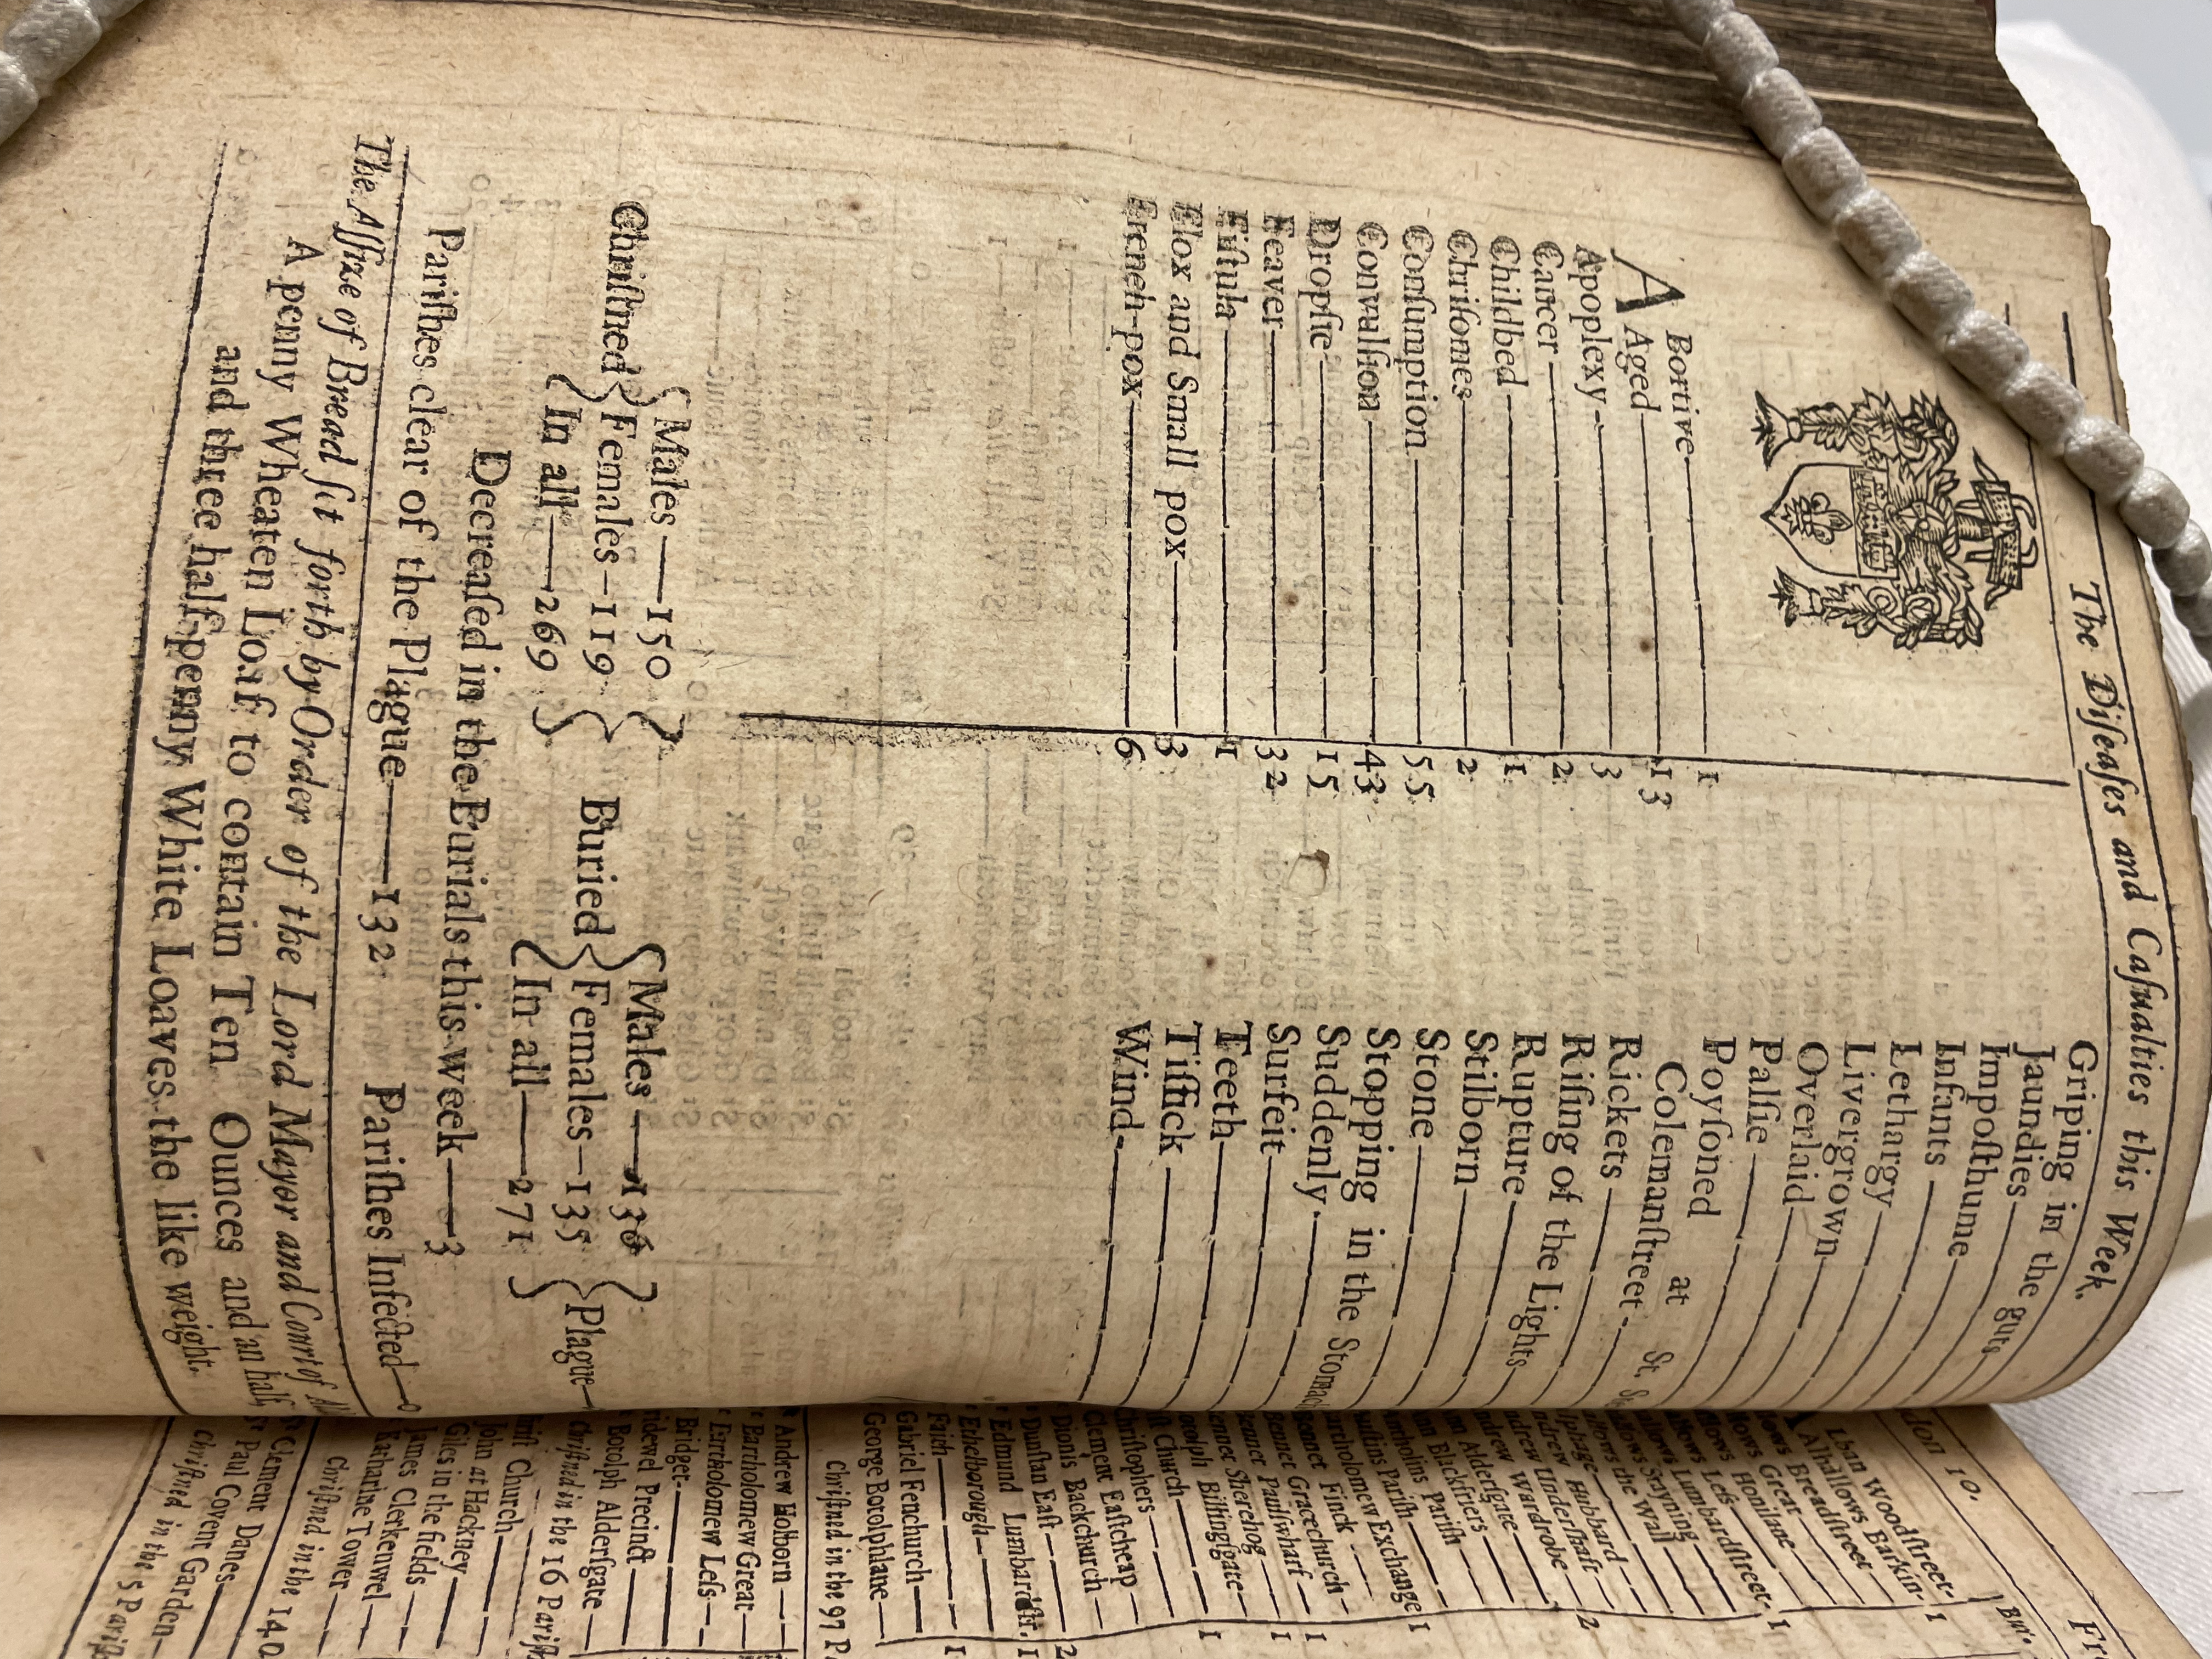 The Diſeaſes and Caſualties this Week.
ABortive 1
Aged 13
Apoplexy 3
Cancer 2
Childbed 1
Chriſomes 2
Conſumption 55
Convulſion 43
Dropſie 15
Feaver 32
Fiſtula 1
Flox and Small pox 3
French-pox 6
Griping in the guts
Jaundies
Impoſthume
Infants
Lethargy
Livergrown
Overlaid
Palſie
Poyſoned at St.
Colemanſtreet
Rickets
Riſing of the Lights
Rupture
Stilborn
Stone
Stopping in the Stomach
Suddenly
Surfeit
Teeth
Tiſſick
Wind
Chriſtned { Males 150 Females 119 In all 269 }
Buried { Males 136 Females 135 In all 271 } Plague
Decreaſed in the Burials this week 3
Pariſhes clear of the Plague 132 Pariſhes Infected 0
The Aſſize of Bread ſet forth by Order of the Lord Mayor and Court of
A penny Wheaten Loaf to contain Ten Ounces and an half,
and three half-penny White Loaves the like weight.
don 10.
Fr
Bur.
lban Woodſtreet
Alhallows Barkin 1
lows Breadſtreet
lows Great
llows Honilane
llows Leſs
llows Lumbardſtreet 1
llows Stayning
llows the Wall
lphage
ndrew Hubbard
ndrew Underſhaft 2
ndrew Wardrobe
nn Alderſgate
nn Blackfriers
ntholins Pariſh
uſtins Pariſh
artholomew Exchange 1
ennet Finck
Bennet Gracechurch 1
Bennet Paulſwharf 1
ennet Sherehog
otolph Billingſgate 1
ſt Church
hriſtophers
Clement Eaſtcheap
Dionis Backchurch
Dunſtan Eaſt 2
Edmund Lumbardſtr. 1
Ethelborough
Faith 1
Gabriel Fenchurch
George Botolphlane
Chriſtned in the 97 P
Andrew Holborn
Bartholomew Great
Bartholomew Leſs
Bridget
ridewel Precinct
Botolph Alderſgate
Chriſtned in the 16 Pariſh
riſt Church
John at Hackney
Giles in the fields
James Clerkenwel
Katharine Tower
Chriſtned in the 14 O
Clement Danes
Paul Covent Garden
Chriſtned in the 5 Pariſh